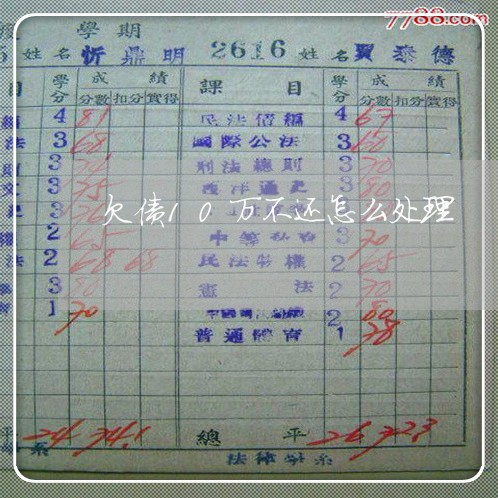 7788.com
學期
姓名 忻鼎明 2616 姓名 賈泰德
目 學分 成績 課目 學分 成績
分數 扣分 實得 分數 扣分 實得
4 81 民法債編 4 67
法 3 68 國際公法 3 60
3 刑法總則 3 70
3 75 西洋通史 3 80
欠债10万不还怎么处理
2 65 3 70
法 2 68 68 民法物權 2 65
3 80 憲法 2 70
1 70 2 80
普通體育 1 78
平 24 74.1 總平 26 72.3
系 法律學系